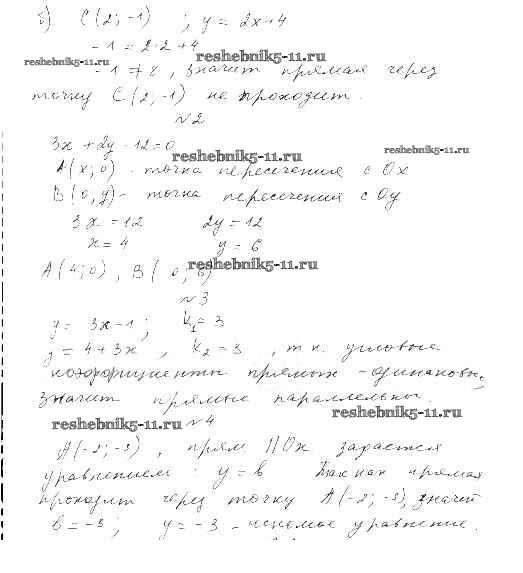 б) C(2;-1) ; y = 2x+4
-1 = 2·2+4
reshebnik5-11.ru
reshebnik5-11.ru
-1 ≠ 8, значит прямая через
точку C(2,-1) не проходит.
№2
3x + 2y - 12 = 0
reshebnik5-11.ru
reshebnik5-11.ru
A(x;0) - точка пересечения с Ox
B(0,y) - точка пересечения с Oy
3x = 12 2y = 12
x = 4 y = 6
reshebnik5-11.ru
A(4;0), B(0;6)
№3
y = 3x-1; k₁ = 3
y = 4+3x, k₂ = 3, т.к. угловые
коэффициенты прямых - одинаковы,
значит прямые параллельны.
reshebnik5-11.ru
reshebnik5-11.ru №4
A(-2;-3), прям ||Ox задается
уравнением: y = b Так как прямая
проходит через точку A(-2;-3), значит
b = -3; y = -3 - искомое уравнение.